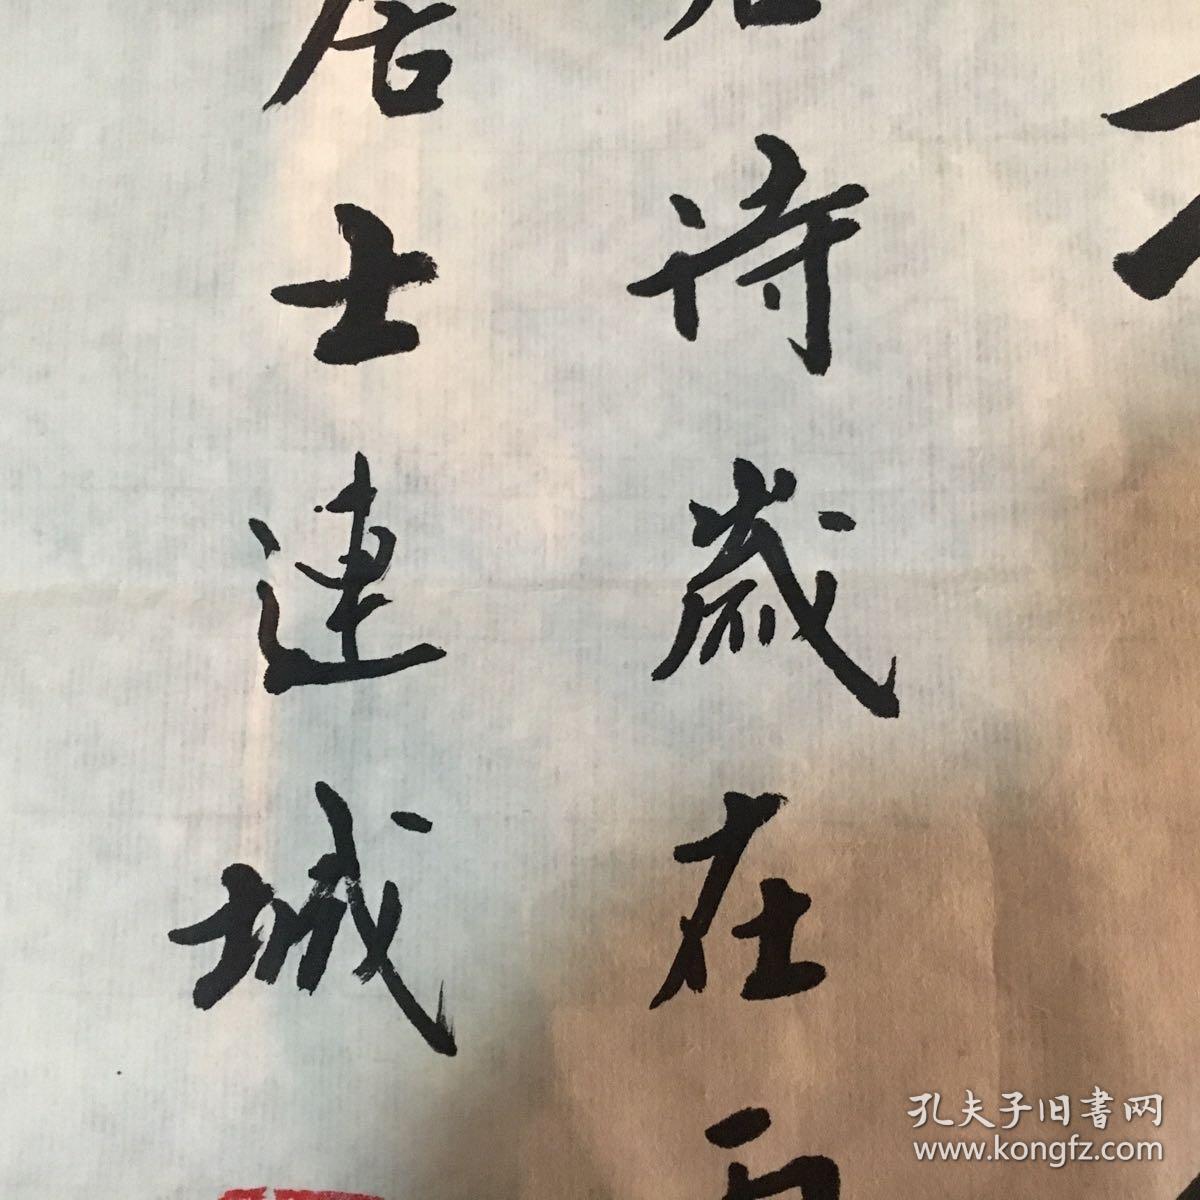 诗歲在
居士連城
孔夫子旧書网
www.kongfz.com